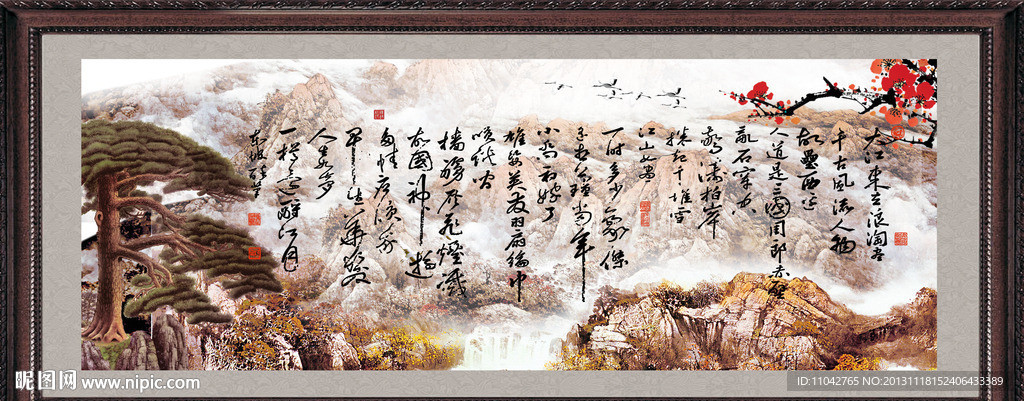 大江東去浪淘尽
千古風流人物
故壘西边
人道是三國周郎赤壁
亂石穿空
驚濤拍岸
捲起千堆雪
江山如畫
一时多少豪傑
遥想公瑾當年
小喬初嫁了
雄姿英發羽扇綸巾
談笑间
檣櫓灰飛煙滅
故國神遊
多情應笑我
早生華髮
人生如夢
一樽還酹江月
東坡
昵图网 www.nipic.com
ID:11042765 NO:20131118152406433389